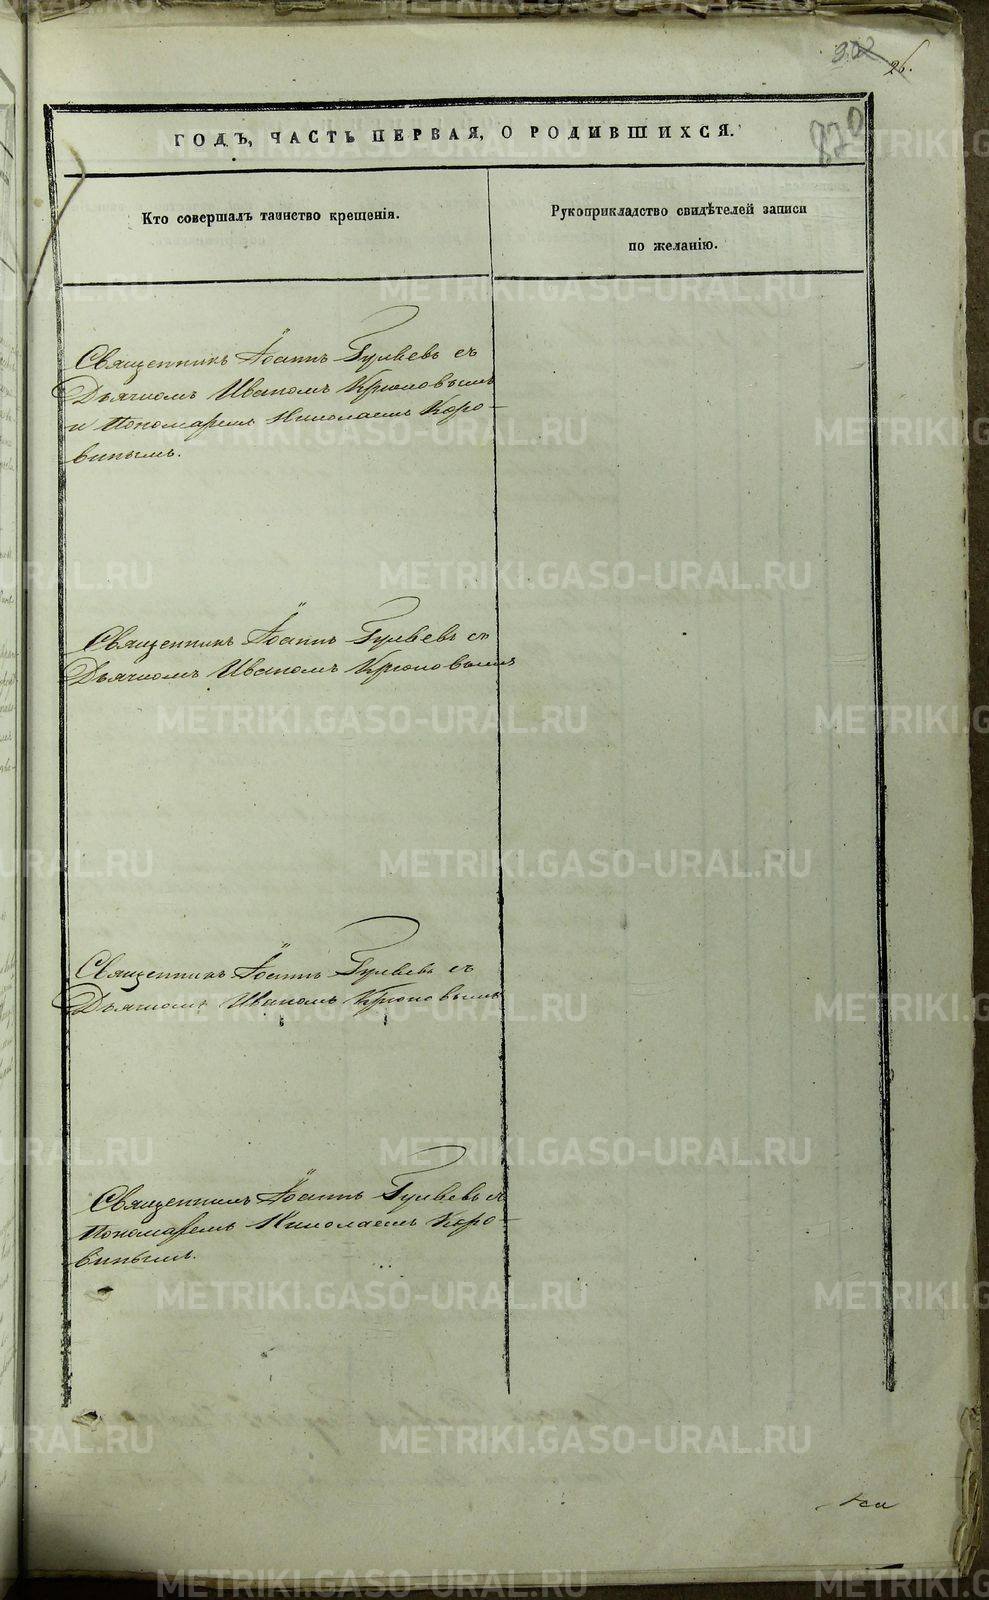 26.
870
ГОДЪ, ЧАСТЬ ПЕРВАЯ, О РОДИВШИХСЯ.
Кто совершалъ таинство крещенія.
Рукоприкладство свидѣтелей записи
по желанію.
Священникъ Іоаннъ Гуляевъ съ
Дьячкомъ Иваномъ Крюковымъ
и Пономаремъ Николаемъ Коро-
винымъ.
Священникъ Іоаннъ Гуляевъ съ
Дьячкомъ Иваномъ Крюковымъ
Священникъ Іоаннъ Гуляевъ съ
Дьячкомъ Иваномъ Крюковымъ
Священникъ Іоаннъ Гуляевъ съ
Пономаремъ Николаемъ Коро-
винымъ.
METRIKI.GASO-URAL.RU